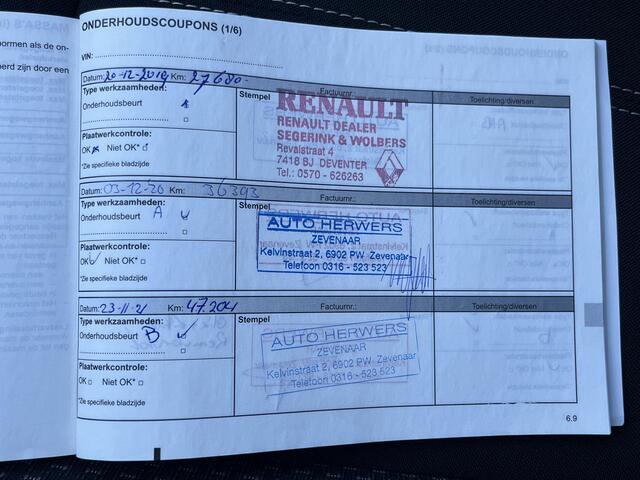 ONDERHOUDSCOUPONS (1/6)
VIN:
Datum: 20-12-2019 Km: 27680-
Factuurnr.:
Type werkzaamheden:
Stempel
Toelichting/diversen
Onderhoudsbeurt
RENAULT
RENAULT DEALER
SEGERINK & WOLBERS
Revalstraat 4
7418 BJ DEVENTER
Tel.: 0570 - 626263
Plaatwerkcontrole:
OK Niet OK*
*Zie specifieke bladzijde
Datum: 03-12-20 Km: 36393
Factuurnr.:
Type werkzaamheden:
Stempel
Toelichting/diversen
Onderhoudsbeurt A
AUTO HERWERS
ZEVENAAR
Kelvinstraat 2, 6902 PW Zevenaar
Telefoon 0316 - 523 523
Plaatwerkcontrole:
OK Niet OK*
*Zie specifieke bladzijde
Datum: 23-11-21 Km: 47.204
Factuurnr.:
Type werkzaamheden:
Stempel
Toelichting/diversen
Onderhoudsbeurt B
AUTO HERWERS
ZEVENAAR
Kelvinstraat 2, 6902 PW Zevenaar
Telefoon 0316 - 523 523
Plaatwerkcontrole:
OK Niet OK*
*Zie specifieke bladzijde
6.9
ormen als de on-
erd zijn door een